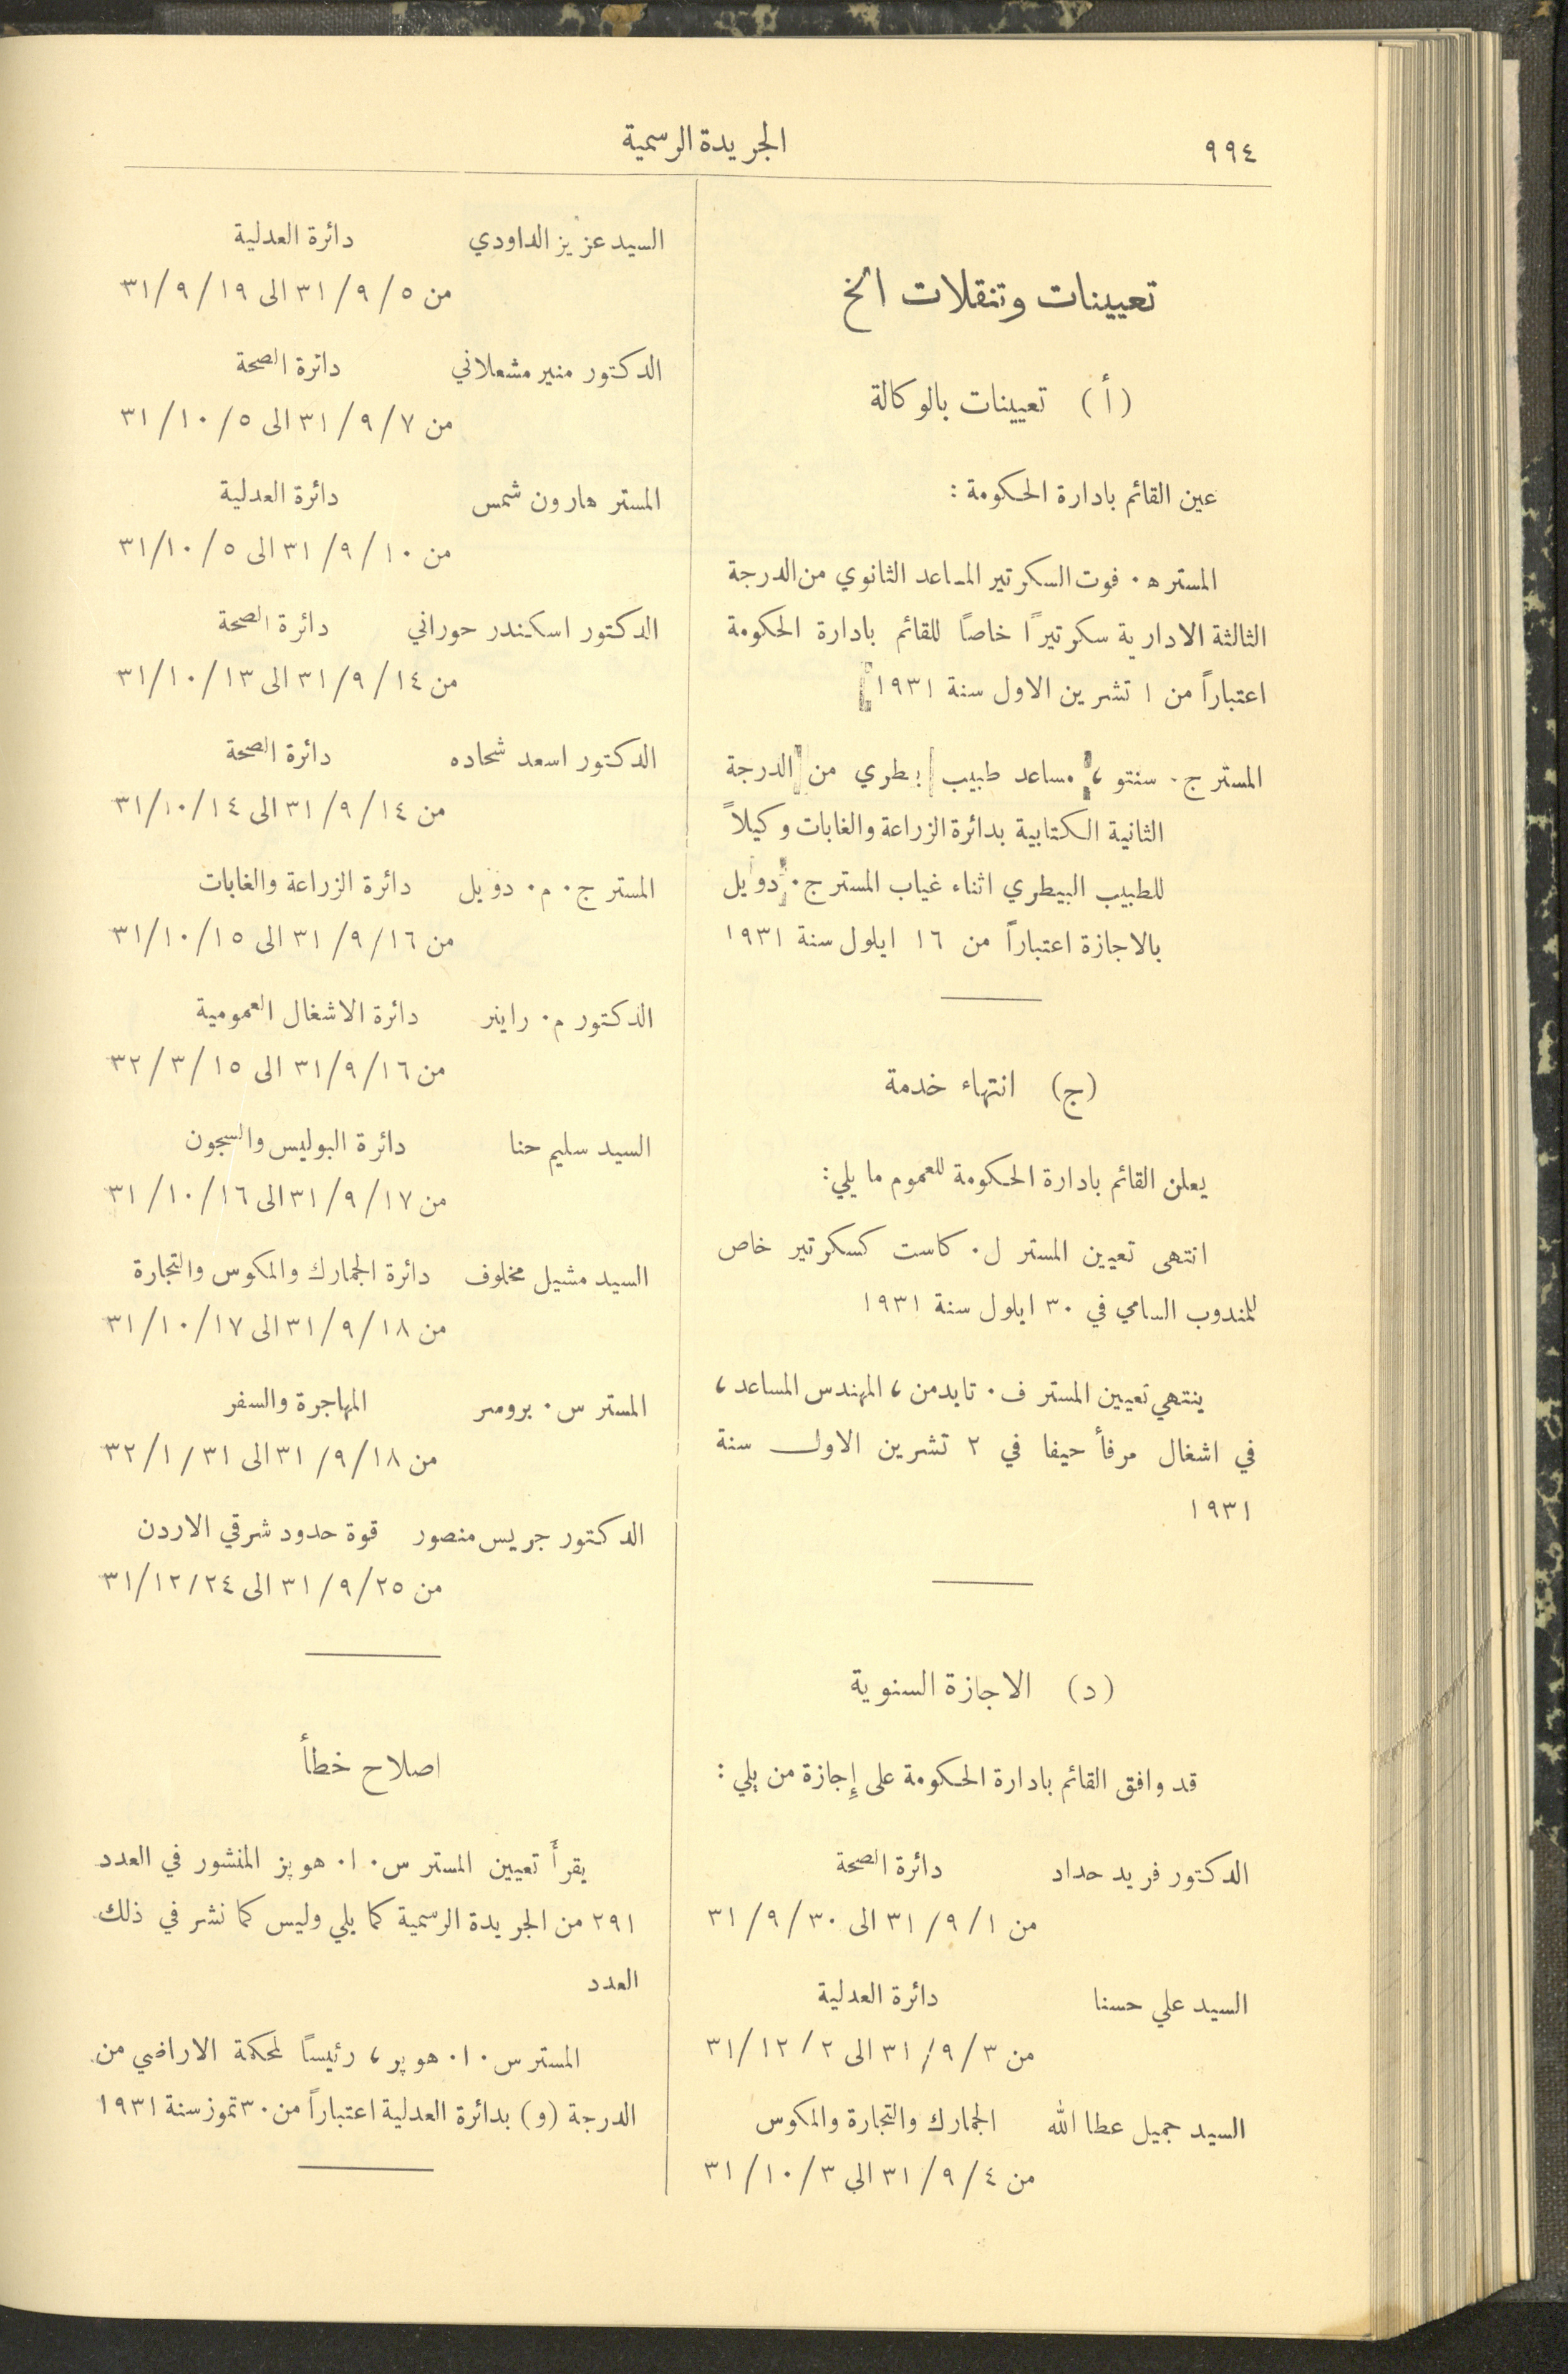 ٩٩٤
الجريدة الرسمية
تعيينات وتنقلات الخ
(أ) تعيينات بالوكالة
عين القائم بادارة الحكومة :
المستر ه٠ فوت السكرتير المساعد الثانوي من الدرجة
الثالثة الادارية سكرتيراً خاصاً للقائم بادارة الحكومة
اعتباراً من ١ تشرين الاول سنة ١٩٣١
المستر ج٠ سنتو ، مساعد طبيب بطري من الدرجة
الثانية الكتابية بدائرة الزراعة والغابات وكيلاً
للطبيب البيطري اثناء غياب المستر ج٠ دويل
بالاجازة اعتباراً من ١٦ ايلول سنة ١٩٣١
(ج) انتهاء خدمة
يعلن القائم بادارة الحكومة للعموم ما يلي :
انتهى تعيين المستر ل٠ كاست كسكرتير خاص
للمندوب السامي في ٣٠ ايلول سنة ١٩٣١
ينتهي تعيين المستر ف٠ تايدمن ، المهندس المساعد ،
في اشغال مرفأ حيفا في ٢ تشرين الاول سنة
١٩٣١
(د) الاجازة السنوية
قد وافق القائم بادارة الحكومة على إجازة من يلي :
الدكتور فريد حداد دائرة الصحة
من ١/٩/٣١ الى ٣٠/٩/٣١
السيد علي حسنا دائرة العدلية
من ٣/٩/٣١ الى ٢/١٢/٣١
السيد جميل عطا الله الجمارك والتجارة والمكوس
من ٤/٩/٣١ الى ٣/١٠/٣١
السيد عزيز الداودي دائرة العدلية
من ٥/٩/٣١ الى ١٩/٩/٣١
الدكتور منير مشعلاني دائرة الصحة
من ٧/٩/٣١ الى ٥/١٠/٣١
المستر هارون شمس دائرة العدلية
من ١٠/٩/٣١ الى ٥/١٠/٣١
الدكتور اسكندر حوراني دائرة الصحة
من ١٤/٩/٣١ الى ١٣/١٠/٣١
الدكتور اسعد شحاده دائرة الصحة
من ١٤/٩/٣١ الى ١٤/١٠/٣١
المستر ج٠ م٠ دويل دائرة الزراعة والغابات
من ١٦/٩/٣١ الى ١٥/١٠/٣١
الدكتور م٠ راينر دائرة الاشغال العمومية
من ١٦/٩/٣١ الى ١٥/٣/٣٢
السيد سليم حنا دائرة البوليس والسجون
من ١٧/٩/٣١ الى ١٦/١٠/٣١
السيد مشيل مخلوف دائرة الجمارك والمكوس والتجارة
من ١٨/٩/٣١ الى ١٧/١٠/٣١
المستر س٠ برومر المهاجرة والسفر
من ١٨/٩/٣١ الى ٣١/١/٣٢
الدكتور جريس منصور قوة حدود شرقي الاردن
من ٢٥/٩/٣١ الى ٢٤/١٢/٣١
اصلاح خطأ
يقرأ تعيين المستر س٠ ا٠ هوپز المنشور في العدد
٢٩١ من الجريدة الرسمية كما يلي وليس كما نشر في ذلك
العدد
المستر س٠ ا٠ هوپر ، رئيساً لمحكمة الاراضي من
الدرجة (و) بدائرة العدلية اعتباراً من ٣٠ تموز سنة ١٩٣١